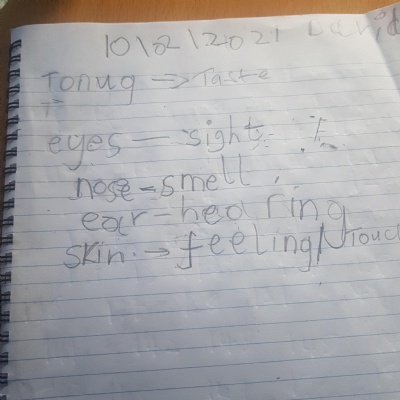 10\02\2021 David
Tonug → Taste
T
eyes — sight
nose - smell
ear - hearing
skin. → feeling/Touch